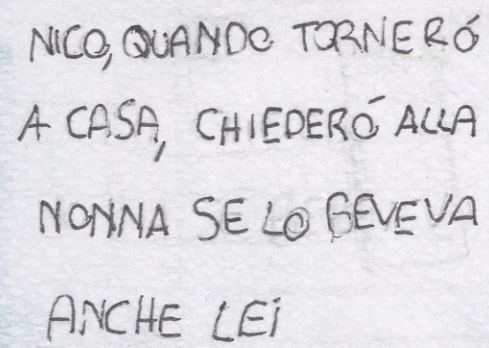 NICO, QUANDO TORNERÓ
A CASA, CHIEDERÓ ALLA
NONNA SE LO BEVEVA
ANCHE LEI